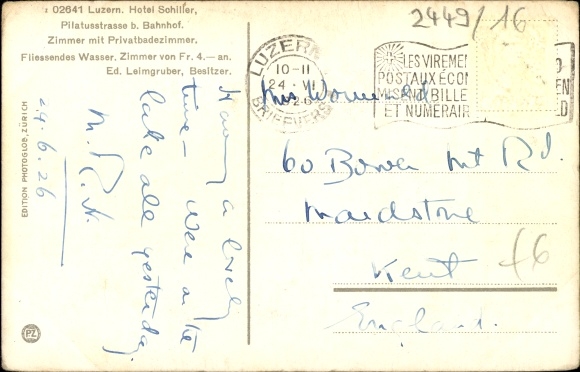 : 02641 Luzern. Hotel Schiller,
Pilatusstrasse b. Bahnhof.
Zimmer mit Privatbadezimmer.
Fliessendes Wasser, Zimmer von Fr. 4.— an.
Ed. Leimgruber, Besitzer.
EDITION PHOTOGLOB, ZÜRICH
PZ
2449/16
LUZERN
10-11
24. VI.
26
BRIEFVERS
LES VIREMEN
POSTAUX ÉCON
MISENT BILLE
ET NUMÉRAIR
O
EN
LD
Having a lovely
time – were on the
lake all yesterday.
M. R. H.
24.6.26
Miss
60 Bower Mt Rd.
Maidstone
Kent
England.
f6